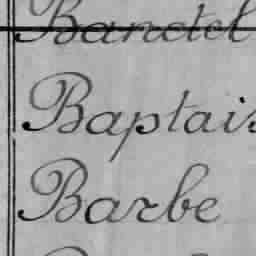 Banctel
Baptais
Barbe